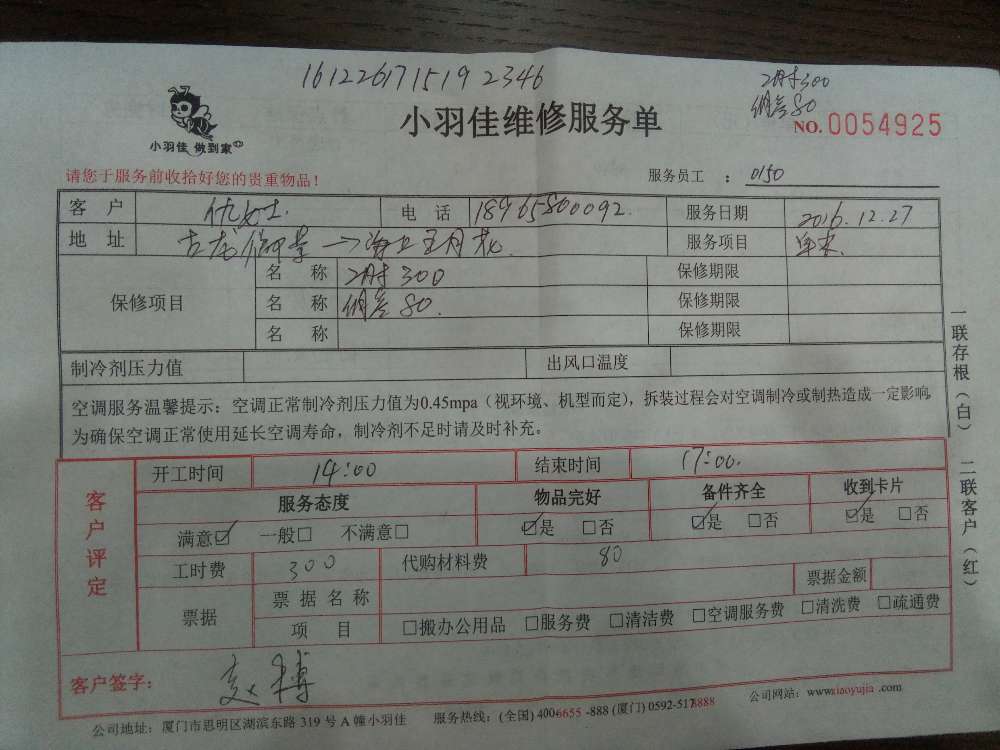 161226171519 2346
2时300
80
小羽佳 做到家
小羽佳维修服务单
NO. 0054925
请您于服务前收拾好您的贵重物品！
服务员工 ： 0150
客 户 女士 电 话 18965800092 服务日期 2016.12.27
地 址 服务项目
保修项目
名 称 2时300 保修期限
名 称 80 保修期限
名 称 保修期限
制冷剂压力值 出风口温度
空调服务温馨提示：空调正常制冷剂压力值为0.45mpa（视环境、机型而定），拆装过程会对空调制冷或制热造成一定影响，
为确保空调正常使用延长空调寿命，制冷剂不足时请及时补充。
一联存根（白） 二联客户（红）
客户评定
开工时间 14:00 结束时间 17:00.
服务态度 物品完好 备件齐全 收到卡片
满意☑ 一般□ 不满意□ ☑是 □否 ☑是 □否 ☑是 □否
工时费 300 代购材料费 80
票据 票据名称 票据金额
项 目 □搬办公用品 □服务费 □清洁费 □空调服务费 □清洗费 □疏通费
客户签字：
公司地址：厦门市思明区湖滨东路 319 号 A 幢小羽佳 服务热线：(全国) 4006655 -888 (厦门) 0592-5178888 公司网站：www.xiaoyujia .com